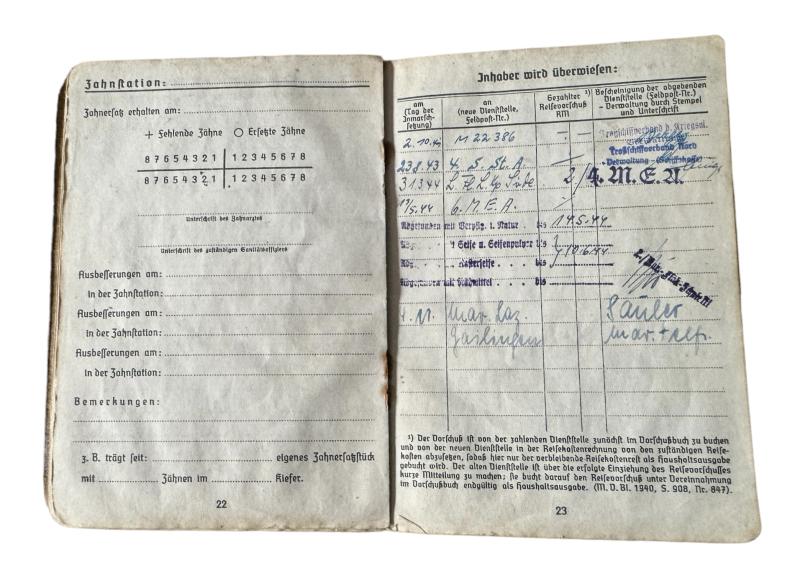 Zahnstation:
Zahnersatz erhalten am:
+ Fehlende Zähne O Ersetzte Zähne
8 7 6 5 4 3 2 1 1 2 3 4 5 6 7 8
8 7 6 5 4 3 2 1 1 2 3 4 5 6 7 8
Unterschrift des Zahnarztes
Unterschrift des zuständigen Sanitätsoffiziers
Ausbesserungen am:
in der Zahnstation:
Ausbesserungen am:
in der Zahnstation:
Ausbesserungen am:
in der Zahnstation:
Bemerkungen:
z. B. trägt seit: eigenes Zahnersatzstück
mit Zähnen im Kiefer.
22
Inhaber wird überwiesen:
am (Tag der Inmarschsetzung)
an (neue Dienststelle, Feldpost-Nr.)
Gezahlter ¹) Reisevorschuß RM
Bescheinigung der abgebenden Dienststelle (Feldpost-Nr.) - Verwaltung durch Stempel und Unterschrift
2.10. M 22 386
Troßschiffverband Nord
23.8.43 4. S. St. A.
- Verwaltung -
3 1 3 44 2 4. M. E. A.
5.44 6. M. E. A.
Abgefunden mit Verpflg. i. Natur bis 14.5.44
" Seife u. Seifenpulver bis
Rasierseife bis 10.6.44
bis
Mar. Laz.
Gailingen
¹) Der Vorschuß ist von der zahlenden Dienststelle zunächst im Vorschußbuch zu buchen
und von der neuen Dienststelle in der Reisekostenrechnung von den zuständigen Reise-
kosten abzusetzen, sodaß hier nur der verbleibende Reisekostenrest als Haushaltsausgabe
gebucht wird. Der alten Dienststelle ist über die erfolgte Einziehung des Reisevorschusses
kurze Mitteilung zu machen; sie bucht darauf den Reisevorschuß unter Vereinnahmung
im Vorschußbuch endgültig als Haushaltsausgabe. (M. D. Bl. 1940, S. 908, Nr. 847).
23